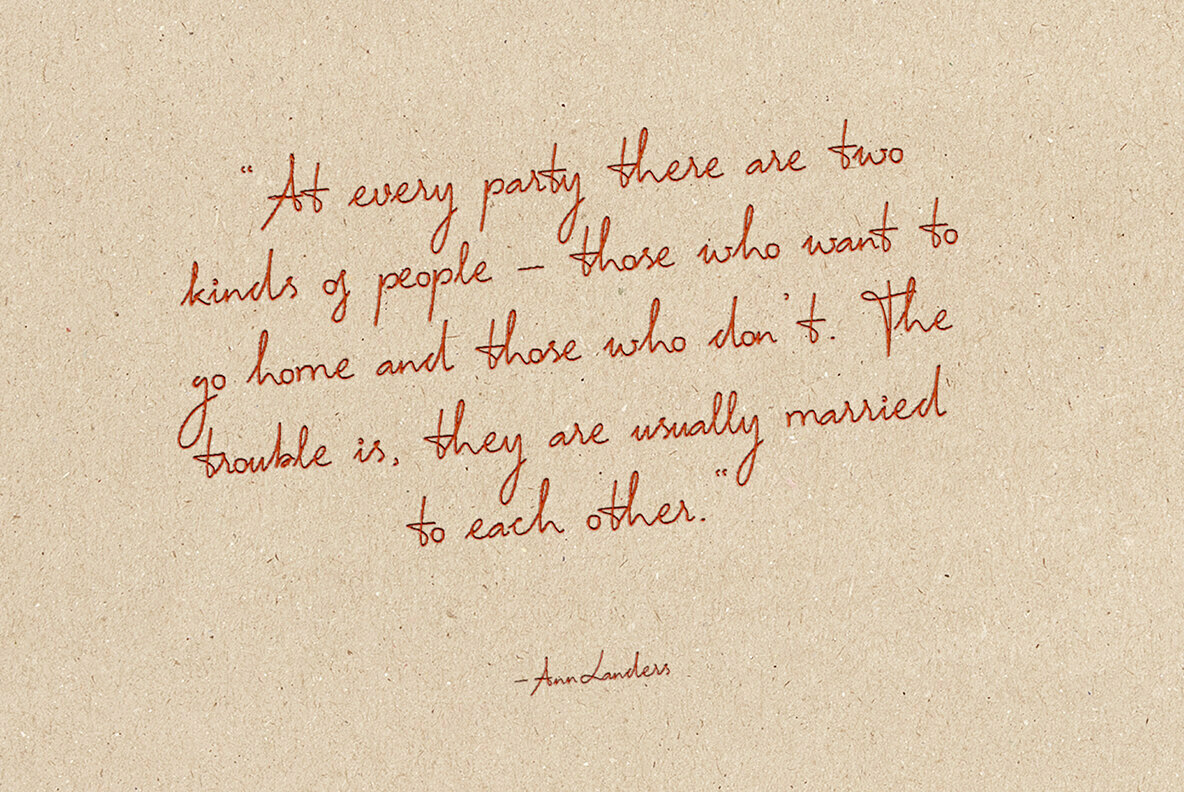 “At every party there are two
kinds of people – those who want to
go home and those who don't. The
trouble is, they are usually married
to each other.“
–Ann Landers